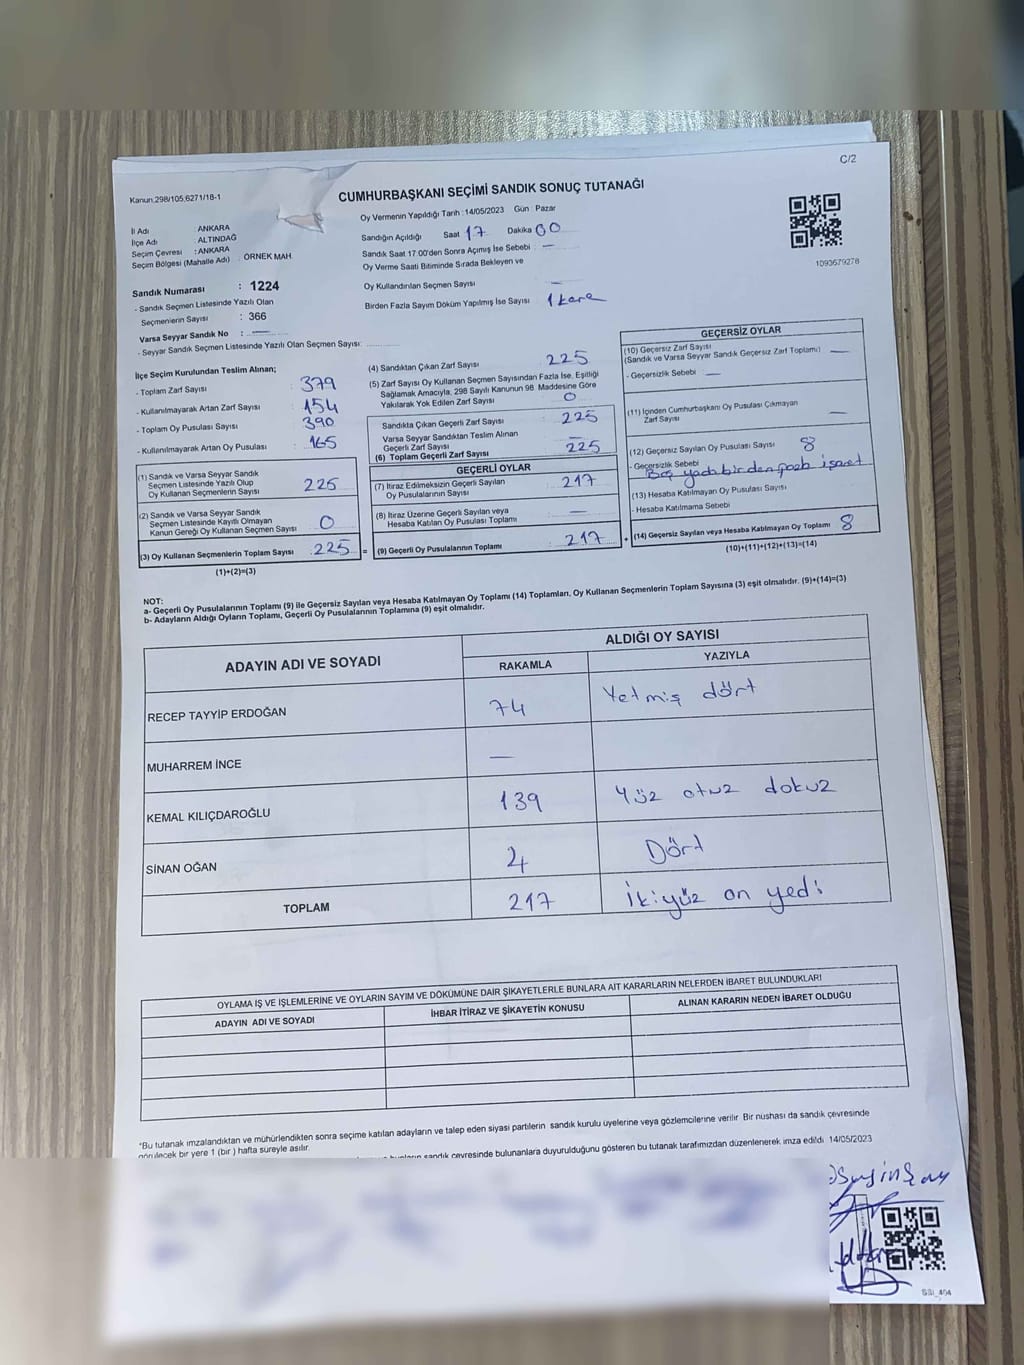 C/2
Kanun,298/105,6271/18-1
CUMHURBAŞKANI SEÇİMİ SANDIK SONUÇ TUTANAĞI
Oy Vermenin Yapıldığı Tarih :14/05/2023 Gün : Pazar
İl Adı : ANKARA
İlçe Adı : ALTINDAĞ
Seçim Çevresi : ANKARA
Seçim Bölgesi (Mahalle Adı) : ÖRNEK MAH.
Sandığın Açıldığı Saat 17 Dakika 00
Sandık Saat 17:00'den Sonra Açılmış İse Sebebi : —
Oy Verme Saati Bitiminde Sırada Bekleyen ve
Oy Kullandırılan Seçmen Sayısı —
Birden Fazla Sayım Döküm Yapılmış İse Sayısı 1 kere
1093679278
Sandık Numarası : 1224
- Sandık Seçmen Listesinde Yazılı Olan
Seçmenlerin Sayısı : 366
Varsa Seyyar Sandık No : —
- Seyyar Sandık Seçmen Listesinde Yazılı Olan Seçmen Sayısı:
İlçe Seçim Kurulundan Teslim Alınan;
- Toplam Zarf Sayısı : 379
- Kullanılmayarak Artan Zarf Sayısı : 154
- Toplam Oy Pusulası Sayısı : 390
- Kullanılmayarak Artan Oy Pusulası : 165
(1) Sandık ve Varsa Seyyar Sandık
Seçmen Listesinde Yazılı Olup
Oy Kullanan Seçmenlerin Sayısı 225
(2) Sandık ve Varsa Seyyar Sandık
Seçmen Listesinde Kayıtlı Olmayan
Kanun Gereği Oy Kullanan Seçmen Sayısı 0
(3) Oy Kullanan Seçmenlerin Toplam Sayısı 225 =
(1)+(2)=(3)
(4) Sandıktan Çıkan Zarf Sayısı 225
(5) Zarf Sayısı Oy Kullanan Seçmen Sayısından Fazla İse, Eşitliği
Sağlamak Amacıyla, 298 Sayılı Kanunun 98. Maddesine Göre
Yakılarak Yok Edilen Zarf Sayısı 0
Sandıkta Çıkan Geçerli Zarf Sayısı 225
Varsa Seyyar Sandıktan Teslim Alınan
Geçerli Zarf Sayısı —
(6) Toplam Geçerli Zarf Sayısı 225
GEÇERLİ OYLAR
(7) İtiraz Edilmeksizin Geçerli Sayılan
Oy Pusulalarının Sayısı 217
(8) İtiraz Üzerine Geçerli Sayılan veya
Hesaba Katılan Oy Pusulası Toplamı —
(9) Geçerli Oy Pusulalarının Toplamı 217 +
GEÇERSİZ OYLAR
(10) Geçersiz Zarf Sayısı
(Sandık ve Varsa Seyyar Sandık Geçersiz Zarf Toplamı) —
- Geçersizlik Sebebi : —
(11) İçinden Cumhurbaşkanı Oy Pusulası Çıkmayan
Zarf Sayısı —
(12) Geçersiz Sayılan Oy Pusulası Sayısı 8
- Geçersizlik Sebebi
Boş yada birden fazla işaret
(13) Hesaba Katılmayan Oy Pusulası Sayısı
- Hesaba Katılmama Sebebi
(14) Geçersiz Sayılan veya Hesaba Katılmayan Oy Toplamı 8
(10)+(11)+(12)+(13)=(14)
NOT:
a- Geçerli Oy Pusulalarının Toplamı (9) ile Geçersiz Sayılan veya Hesaba Katılmayan Oy Toplamı (14) Toplamları, Oy Kullanan Seçmenlerin Toplam Sayısına (3) eşit olmalıdır. (9)+(14)=(3)
b- Adayların Aldığı Oyların Toplamı, Geçerli Oy Pusulalarının Toplamına (9) eşit olmalıdır.
ADAYIN ADI VE SOYADI
ALDIĞI OY SAYISI
RAKAMLA YAZIYLA
RECEP TAYYİP ERDOĞAN 74 Yetmiş dört
MUHARREM İNCE —
KEMAL KILIÇDAROĞLU 139 Yüz otuz dokuz
SİNAN OĞAN 4 Dört
TOPLAM 217 İkiyüz on yedi
OYLAMA İŞ VE İŞLEMLERİNE VE OYLARIN SAYIM VE DÖKÜMÜNE DAİR ŞİKAYETLERLE BUNLARA AİT KARARLARIN NELERDEN İBARET BULUNDUKLARI
ADAYIN ADI VE SOYADI İHBAR İTİRAZ VE ŞİKAYETİN KONUSU ALINAN KARARIN NEDEN İBARET OLDUĞU
*Bu tutanak imzalandıktan ve mühürlendikten sonra seçime katılan adayların ve talep eden siyasi partilerin sandık kurulu üyelerine veya gözlemcilerine verilir. Bir nüshası da sandık çevresinde
görülecek bir yere 1 (bir) hafta süreyle asılır.
sandık çevresinde bulunanlara duyurulduğunu gösteren bu tutanak tarafımızdan düzenlenerek imza edildi. 14/05/2023